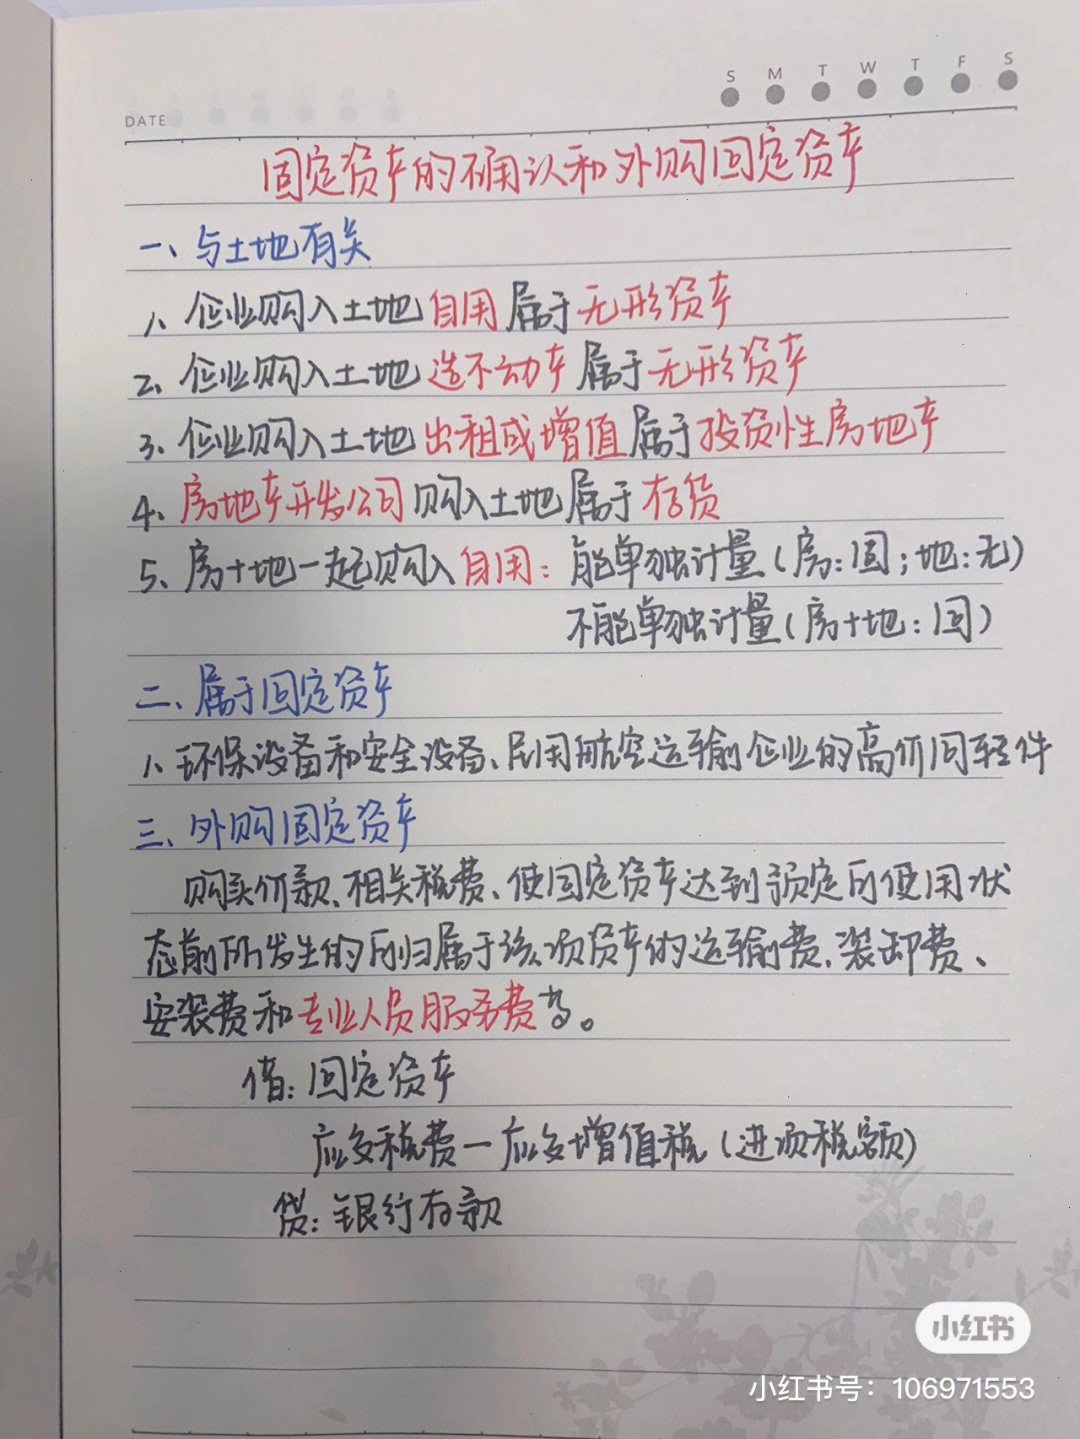 S M T W T F S
DATE
固定资产的确认和外购固定资产
一、与土地有关
1、企业购入土地自用属于无形资产
2、企业购入土地造不动产属于无形资产
3、企业购入土地出租或增值属于投资性房地产
4、房地产开发公司购入土地属于存货
5、房+地一起购入自用：能单独计量(房:固;地:无)
不能单独计量(房+地:固)
二、属于固定资产
1、环保设备和安全设备、民用航空运输企业的高价周转件
三、外购固定资产
购买价款、相关税费、使固定资产达到预定可使用状
态前所发生的可归属于该项资产的运输费、装卸费、
安装费和专业人员服务费等。
借：固定资产
应交税费—应交增值税(进项税额)
贷：银行存款
小红书
小红书号：106971553